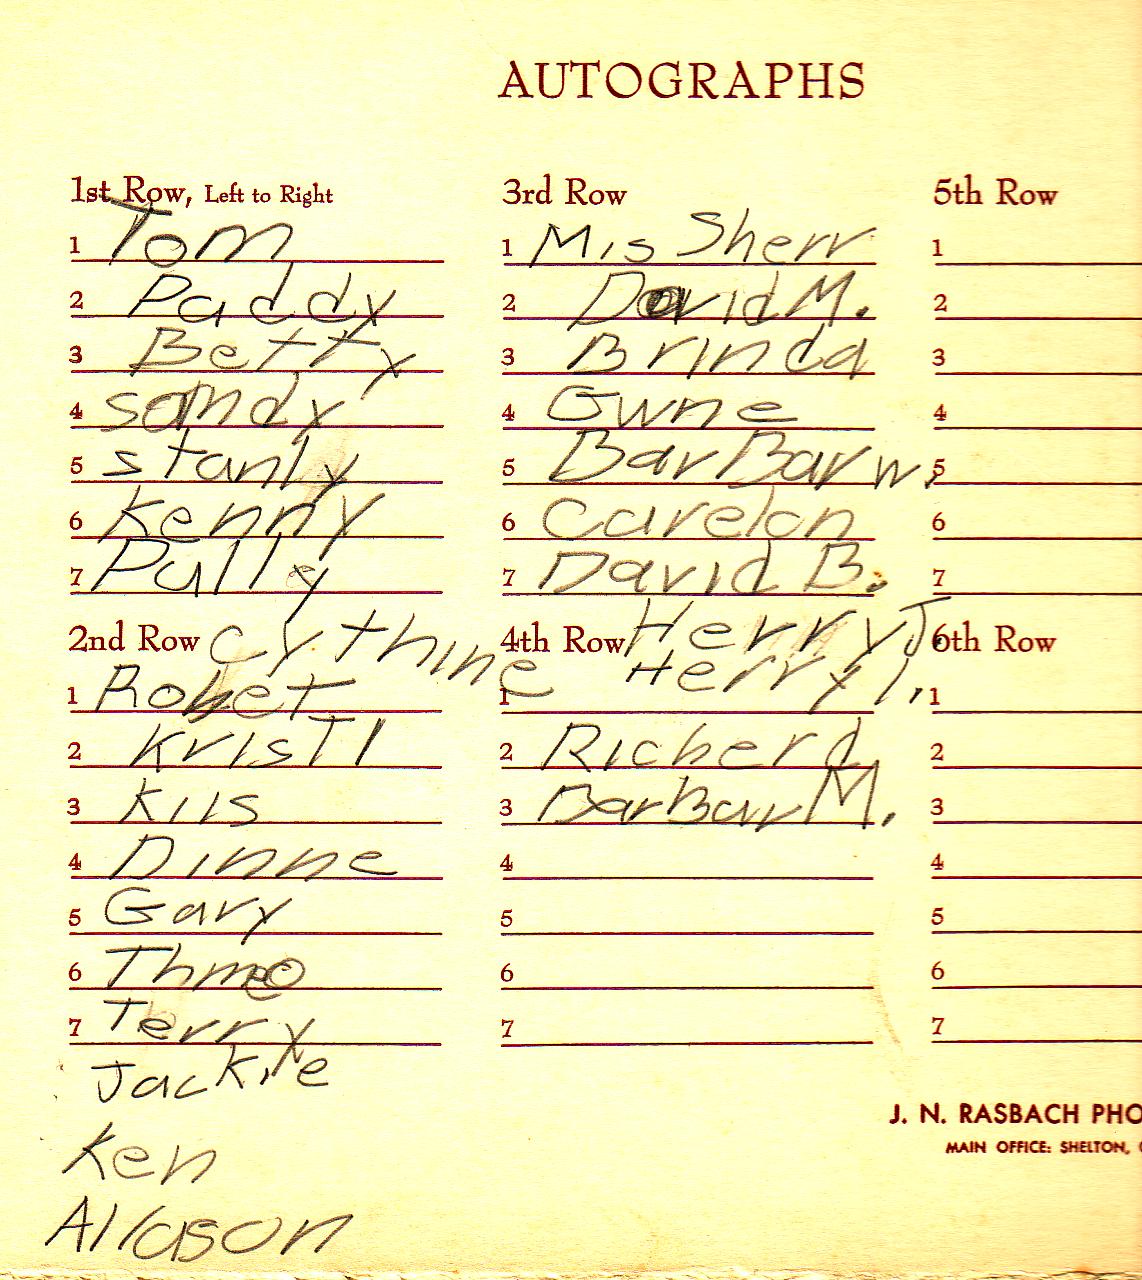 AUTOGRAPHS
1st Row, Left to Right
1 Tom
2 Paddy
3 Betty
4 sandy
5 stanly
6 Kenny
7 Pully
2nd Row cythine
1 Robet
2 Kristi
3 Kils
4 Dinne
5 Gary
6
7 Terry
Jackie
Ken
Allason
3rd Row
1 Mis Sherr
2 David M.
3 Brinda
4 Gwne
5 BarBar w.
6 Carelon
7 David B.
4th Row Herry J.
1 Herry I.
2 Richerd
3 BarBar M.
4
5
6
7
5th Row
1
2
3
4
5
6
7
6th Row
1
2
3
4
5
6
7
J. N. RASBACH PHO
MAIN OFFICE: SHELTON, C